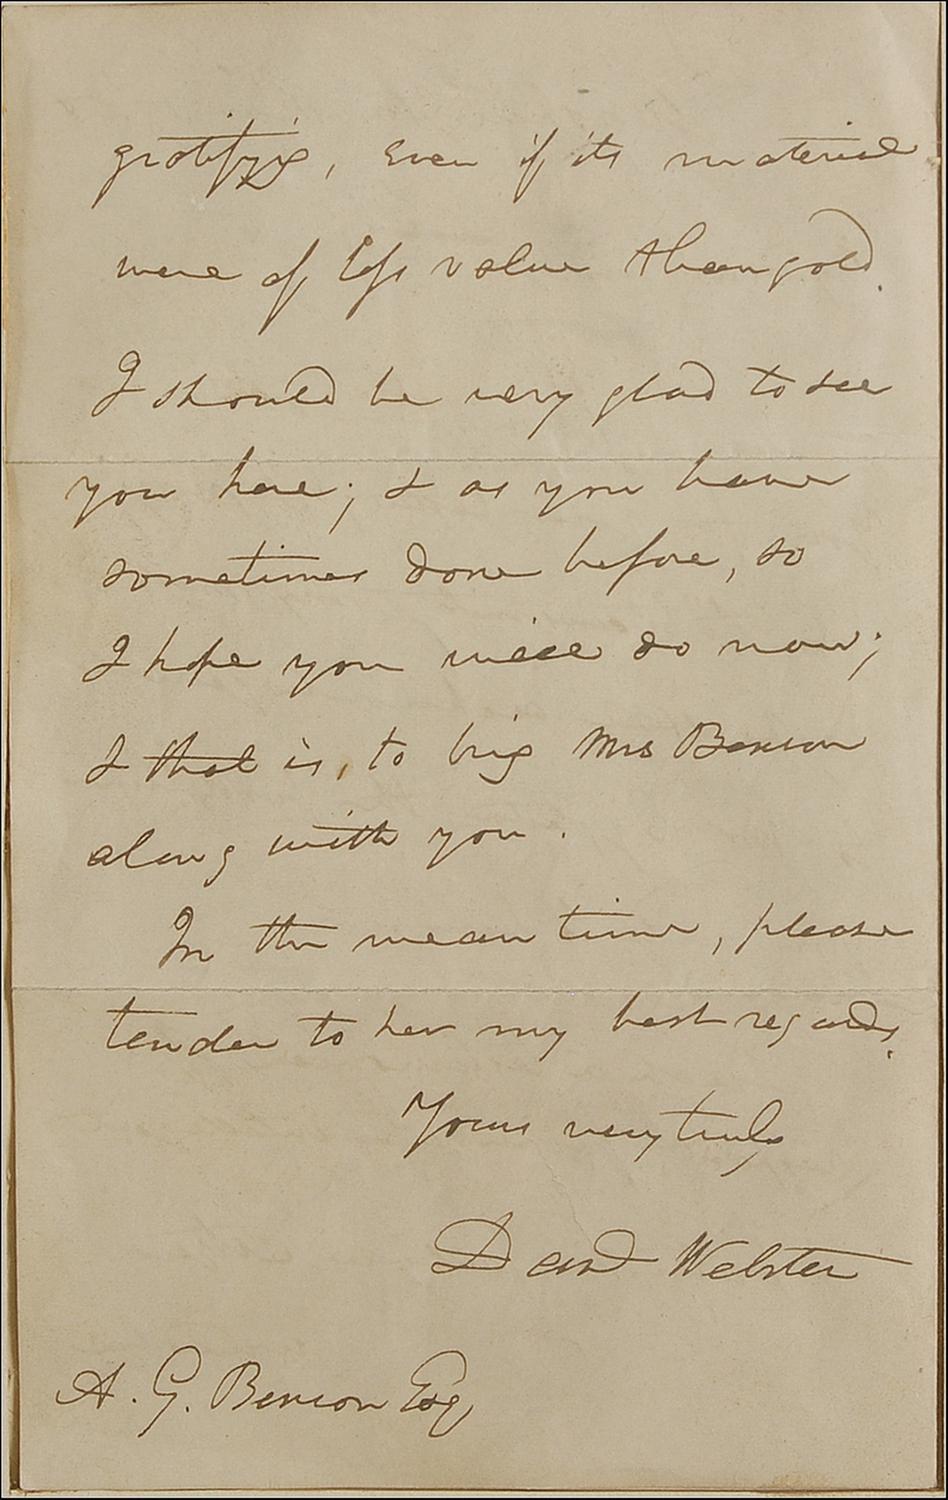 gratifyig, even if its material
were of less value than gold.
I should be very glad to see
you here; & as you have
sometimes done before, so
I hope you will do now;
& that is, to brig Mrs Benson
along with you.
In the mean time, please
tender to her my best regards.
Yours very truly
Danl Webster
A. G. Benson Esq